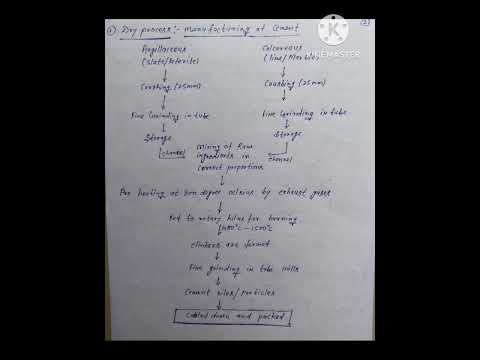 ① Dry process:- Manufacturing of Cement
(2)
KINEMASTER
Argillaceous
(slate/laterite)
Calcareous
(lime/Marble)
Crushing (25mm)
Crushing (25mm)
Fine Grinding in tube
Fine Grinding in tube
Storage
Storage
channel
Mixing of Raw
ingredients in
correct proportions
channel
Pre heating at 800 degree celsius by exhaust gases
Fed to rotary kilns for burning
1400°C-1500°C
clinkers are formed
Fine grinding in tube mills
Cement silos/particles
Cooled down and packed